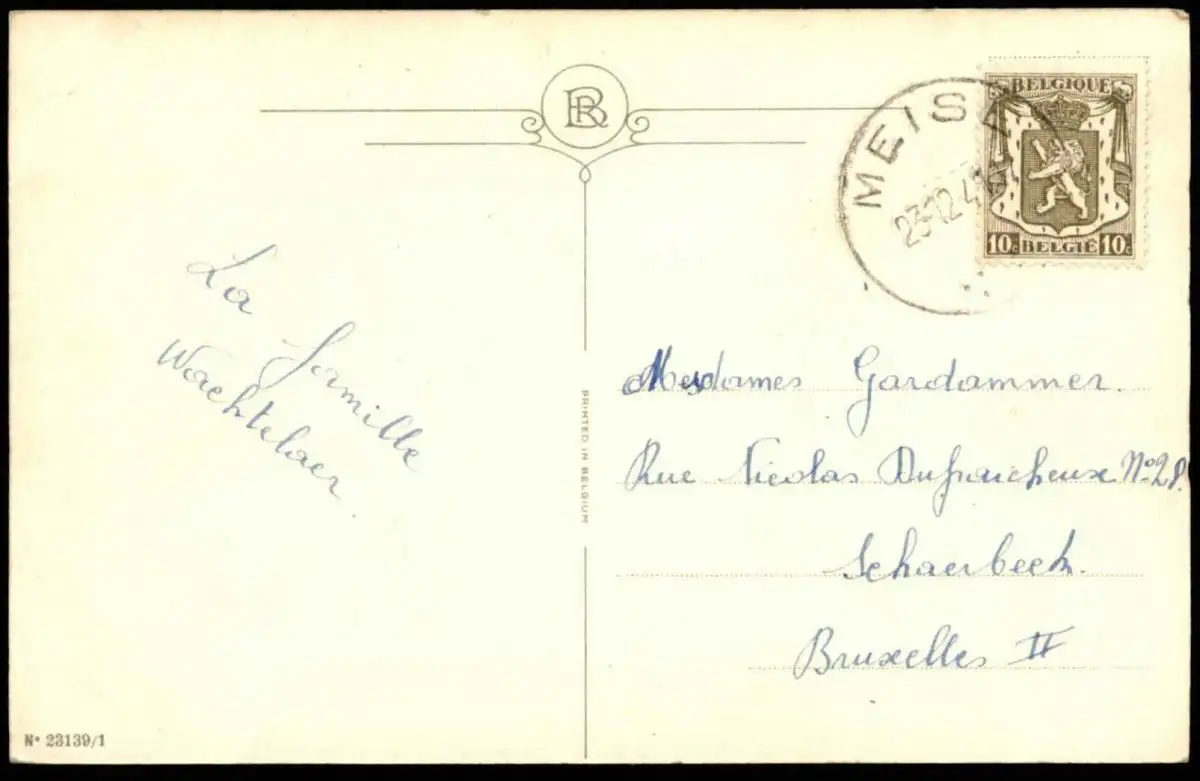 BR
BELGIQUE
10c BELGIË 10c
MEISE
23-12-4
La famille
Wachtelaer
PRINTED IN BELGIUM
Mesdames Gardammer.
Rue Nicolas
Schaerbeek.
Bruxelles II
N° 23139/1